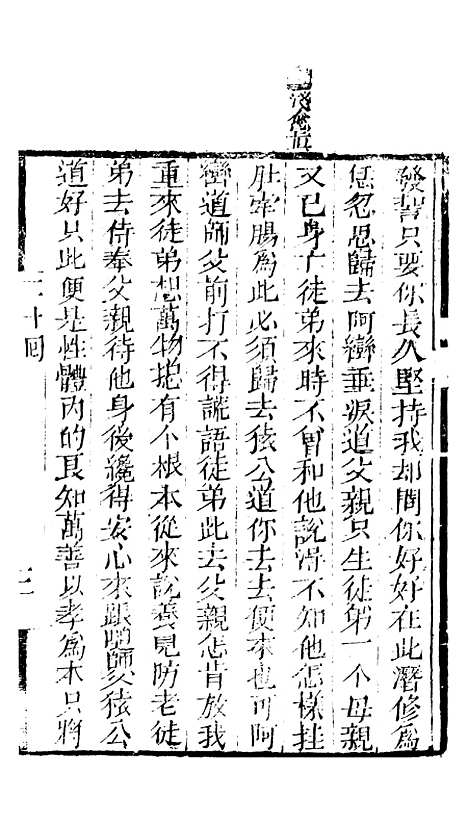 發誓只要你長久堅持我却問你好好在此潛修爲
恁忽思歸去阿蠻垂淚道父親只生徒弟一个母親
又已身亡徒弟來時不曾和他說得不知他怎樣挂
肚牽腸爲此必須歸去猿公道你去去便來也可阿
蠻道師父前打不得謊語徒弟此去父親怎肯放我
重來徒弟想萬物揔有个根本從來說養兒防老徒
弟去侍奉父親待他身後纔得安心來跟隨師父猿公
道好只此便是性體內的良知萬善以孝爲本只將
十回